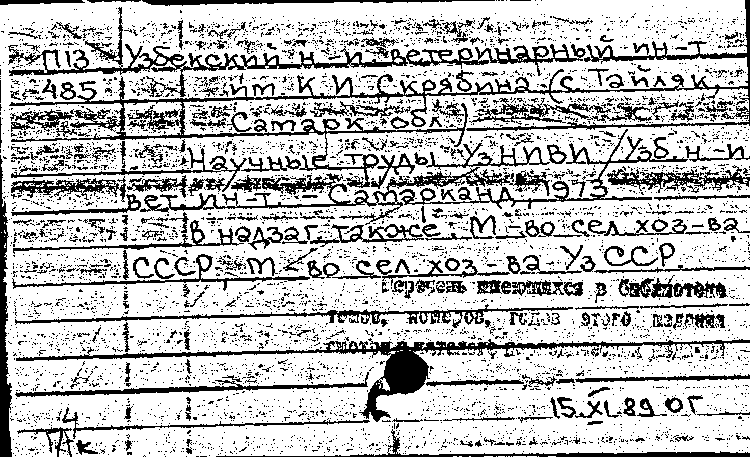 П13 Узбекский н.-и. ветеринарный ин-т
485 им. К.И. Скрябина (с. Тайляк,
Самарк. обл.)
Научные труды УзНИВИ / Узб. н.-и.
вет. ин-т. – Самарканд, 1973
В надзаг. также: М-во сел. хоз-ва
СССР, М-во сел. хоз-ва УзССР.
Перечень имеющихся в библиотеке
томов, номеров, годов этого издания
смотри в каталоге
15.XI.89 ОГ